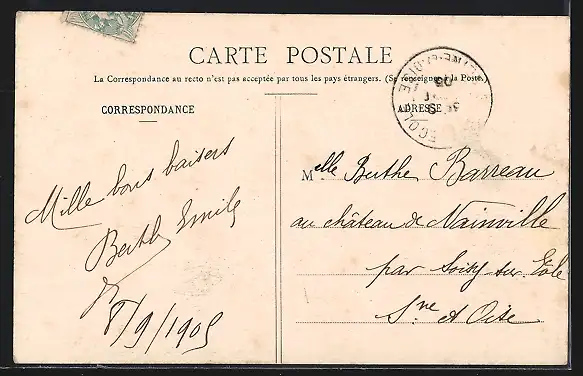 CARTE POSTALE
La Correspondance au recto n'est pas acceptée par tous les pays étrangers. (Se renseigner à la Poste.)
CORRESPONDANCE
ADRESSE
Mille bons baisers
Berthe Emile
8/9/1905
Melle Berthe Barreau
au château de Nainville
par Soisy-sur-Ecole
S.ne et Oise